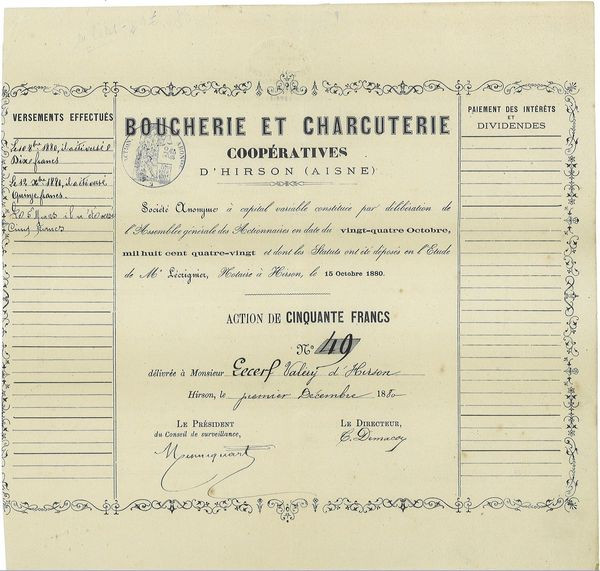 VERSEMENTS EFFECTUÉS
Le 10 8bre 1880, il a été versé
Dix francs
Le 12 Xbre 1880, il a été versé
Quinze francs.
Cinq francs
BOUCHERIE ET CHARCUTERIE
COOPÉRATIVES
D'HIRSON (AISNE)
Société Anonyme à capital variable constituée par délibération de
l'Assemblée générale des Actionnaires en date du vingt-quatre Octobre,
mil huit cent quatre-vingt et dont les Statuts ont été déposés en l'Étude
de Me Lécrignier, Notaire à Hirson, le 15 Octobre 1880.
ACTION DE CINQUANTE FRANCS
No 49
délivrée à Monsieur Lecerf Valery d'Hirson
Hirson, le premier Décembre 1880
LE PRÉSIDENT
du Conseil de surveillance,
LE DIRECTEUR,
PAIEMENT DES INTÉRÊTS
ET
DIVIDENDES